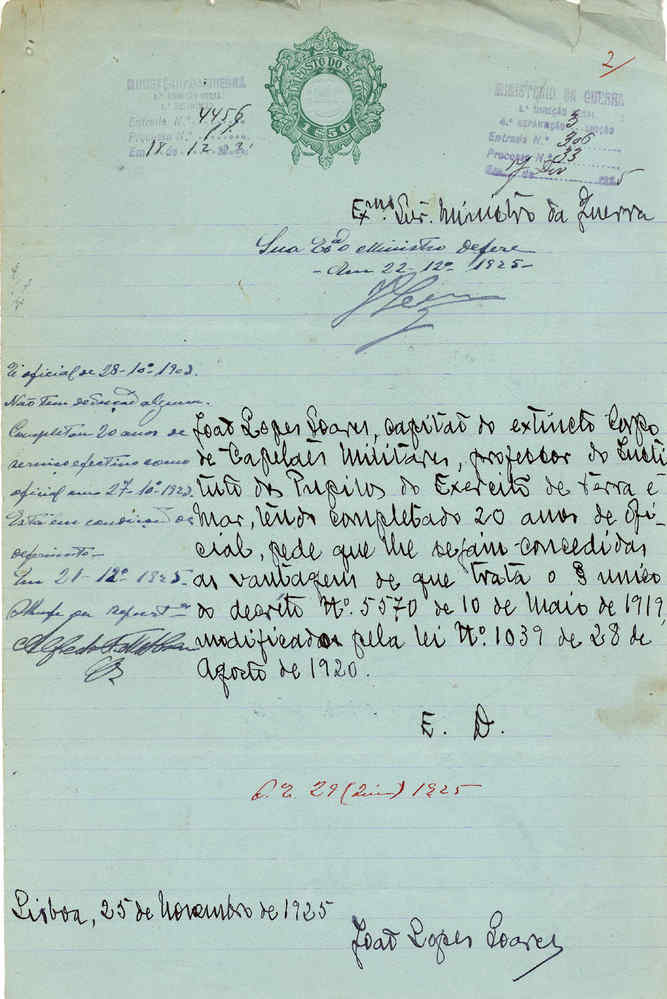 2
IMPOSTO DO SELO
1$50
MINISTÉRIO DA GUERRA
1.ª DIRECÇÃO GERAL
Entrada N.º 4456
Processo N.º
Em 18 de 12
MINISTÉRIO DA GUERRA
1.ª DIRECÇÃO GERAL
6.ª REPARTIÇÃO
Entrada N.º 306
Processo N.º 33
Exmo Snr. Ministro da Guerra
Sua Exª o Ministro defere
- Em 22-12º 1925-
É oficial de 28-10º-1903.
Não tem deducção alguma.
Completou 20 anos de
serviço efectivo como
oficial em 27-10º-1923.
Está em condições de
deferimento-
Em 21-12º 1925-
João Lopes Soares, capitão do extincto Corpo
de Capelães Militares, professor do Insti
tuto dos Pupilos do Exercito de Terra e
Mar, tendo completado 20 anos de ofi
cial, pede que lhe sejam concedidas
as vantagem de que trata o § unico
do decreto Nº. 5570 de 10 de Maio de 1919,
modificado pela lei Nº. 1039 de 28 de
Agosto de 1920.
E. D.
29 1925
Lisboa, 25 de Novembro de 1925
João Lopes Soares